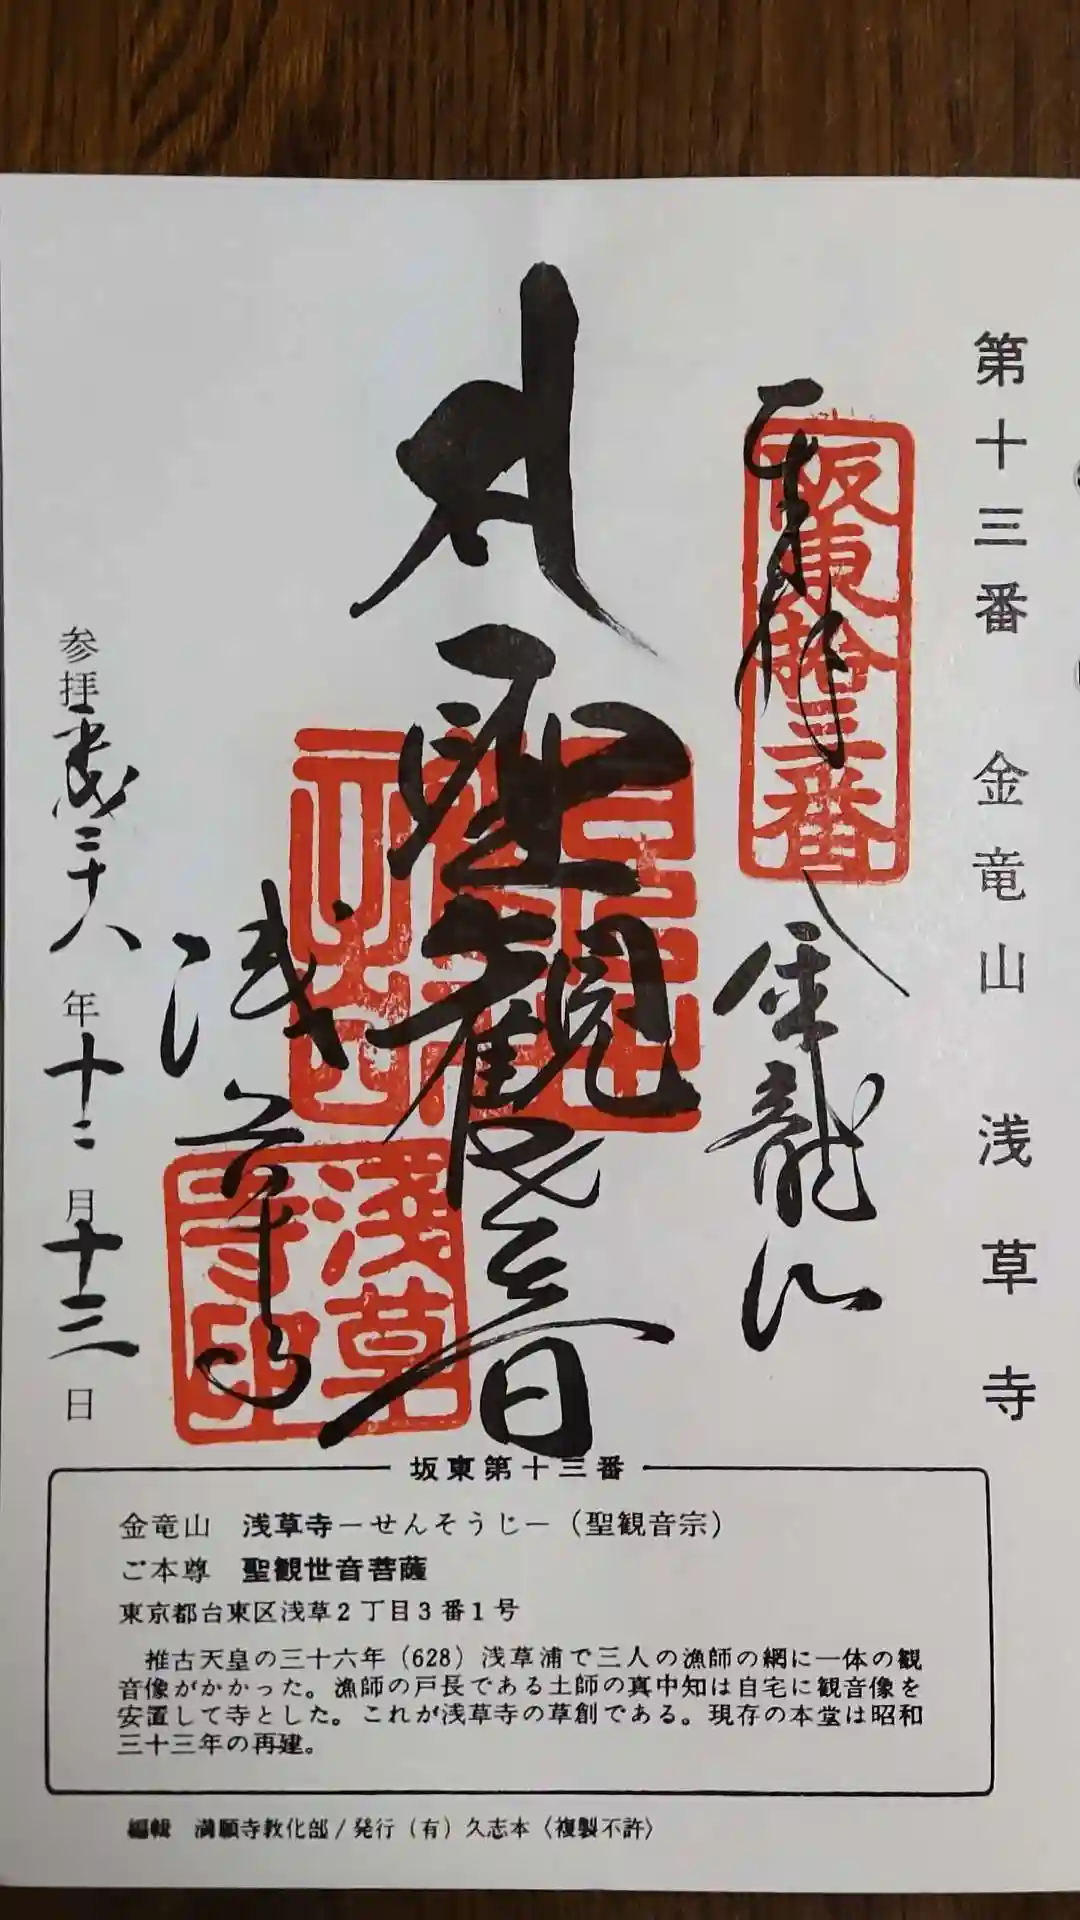 第十三番 金竜山 浅草寺
奉拝
坂東拾三番
金龍山
聖観世音
浅草寺
浅草寺印
参拝 平成二十八年十二月十三日
坂東第十三番
金竜山 浅草寺ーせんそうじー（聖観音宗）
ご本尊 聖観世音菩薩
東京都台東区浅草2丁目3番1号
推古天皇の三十六年（628）浅草浦で三人の漁師の網に一体の観
音像がかかった。漁師の戸長である土師の真中知は自宅に観音像を
安置して寺とした。これが浅草寺の草創である。現存の本堂は昭和
三十三年の再建。
編輯 満願寺教化部/発行（有）久志本〈複製不許〉